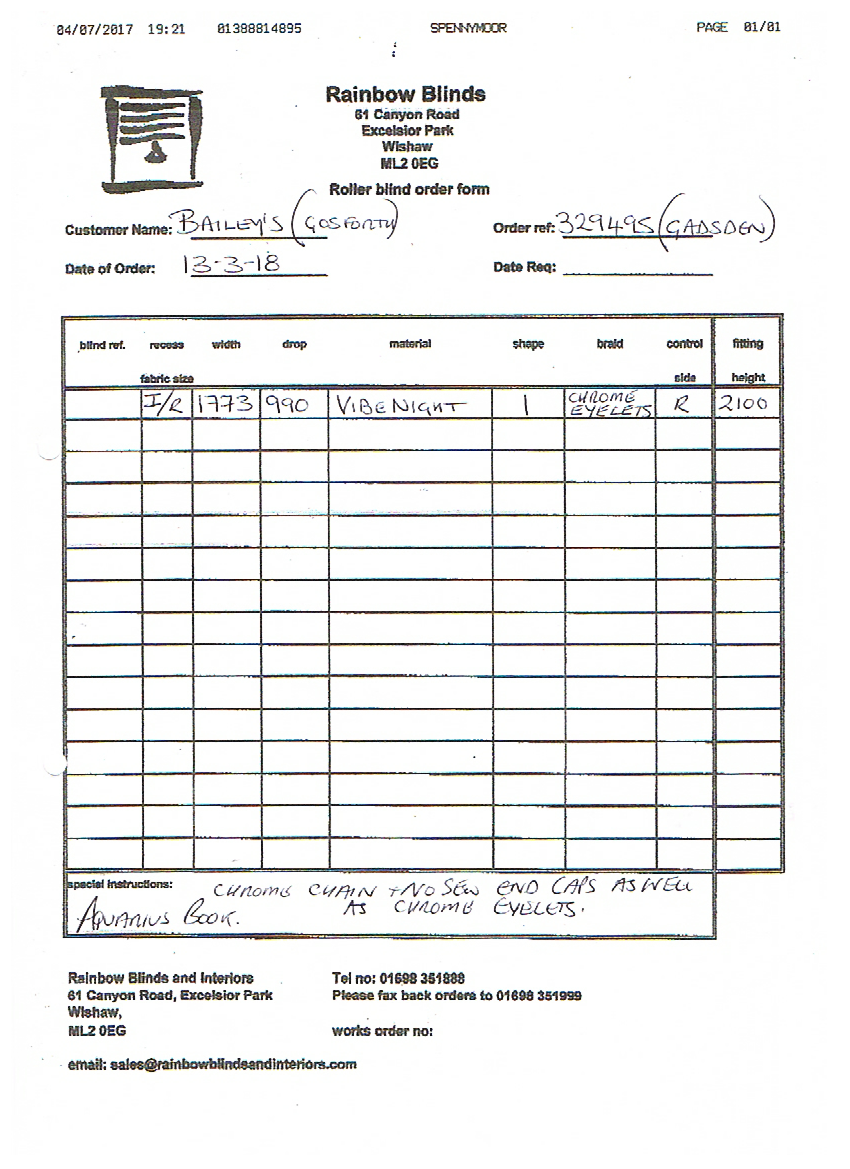 04/07/2017 19:21 01388814895 SPENNYMOOR PAGE 01/01
Rainbow Blinds
61 Canyon Road
Excelsior Park
Wishaw
ML2 0EG
Roller blind order form
Customer Name: BAILEY'S (GOSFORTH) Order ref: 329495 (GADSDEN)
Date of Order: 13-3-18 Date Req:
blind ref. recess width drop material shape braid control fitting
fabric size side height
I/R 1773 990 VIBE NIGHT 1 CHROME EYELETS R 2100
special instructions: CHROME CHAIN + NO SEW END CAPS AS WELL
AQUARIUS BOOK. AS CHROME EYELETS.
Rainbow Blinds and Interiors Tel no: 01698 351888
61 Canyon Road, Excelsior Park Please fax back orders to 01698 351999
Wishaw,
ML2 0EG works order no:
email: sales@rainbowblindsandinteriors.com